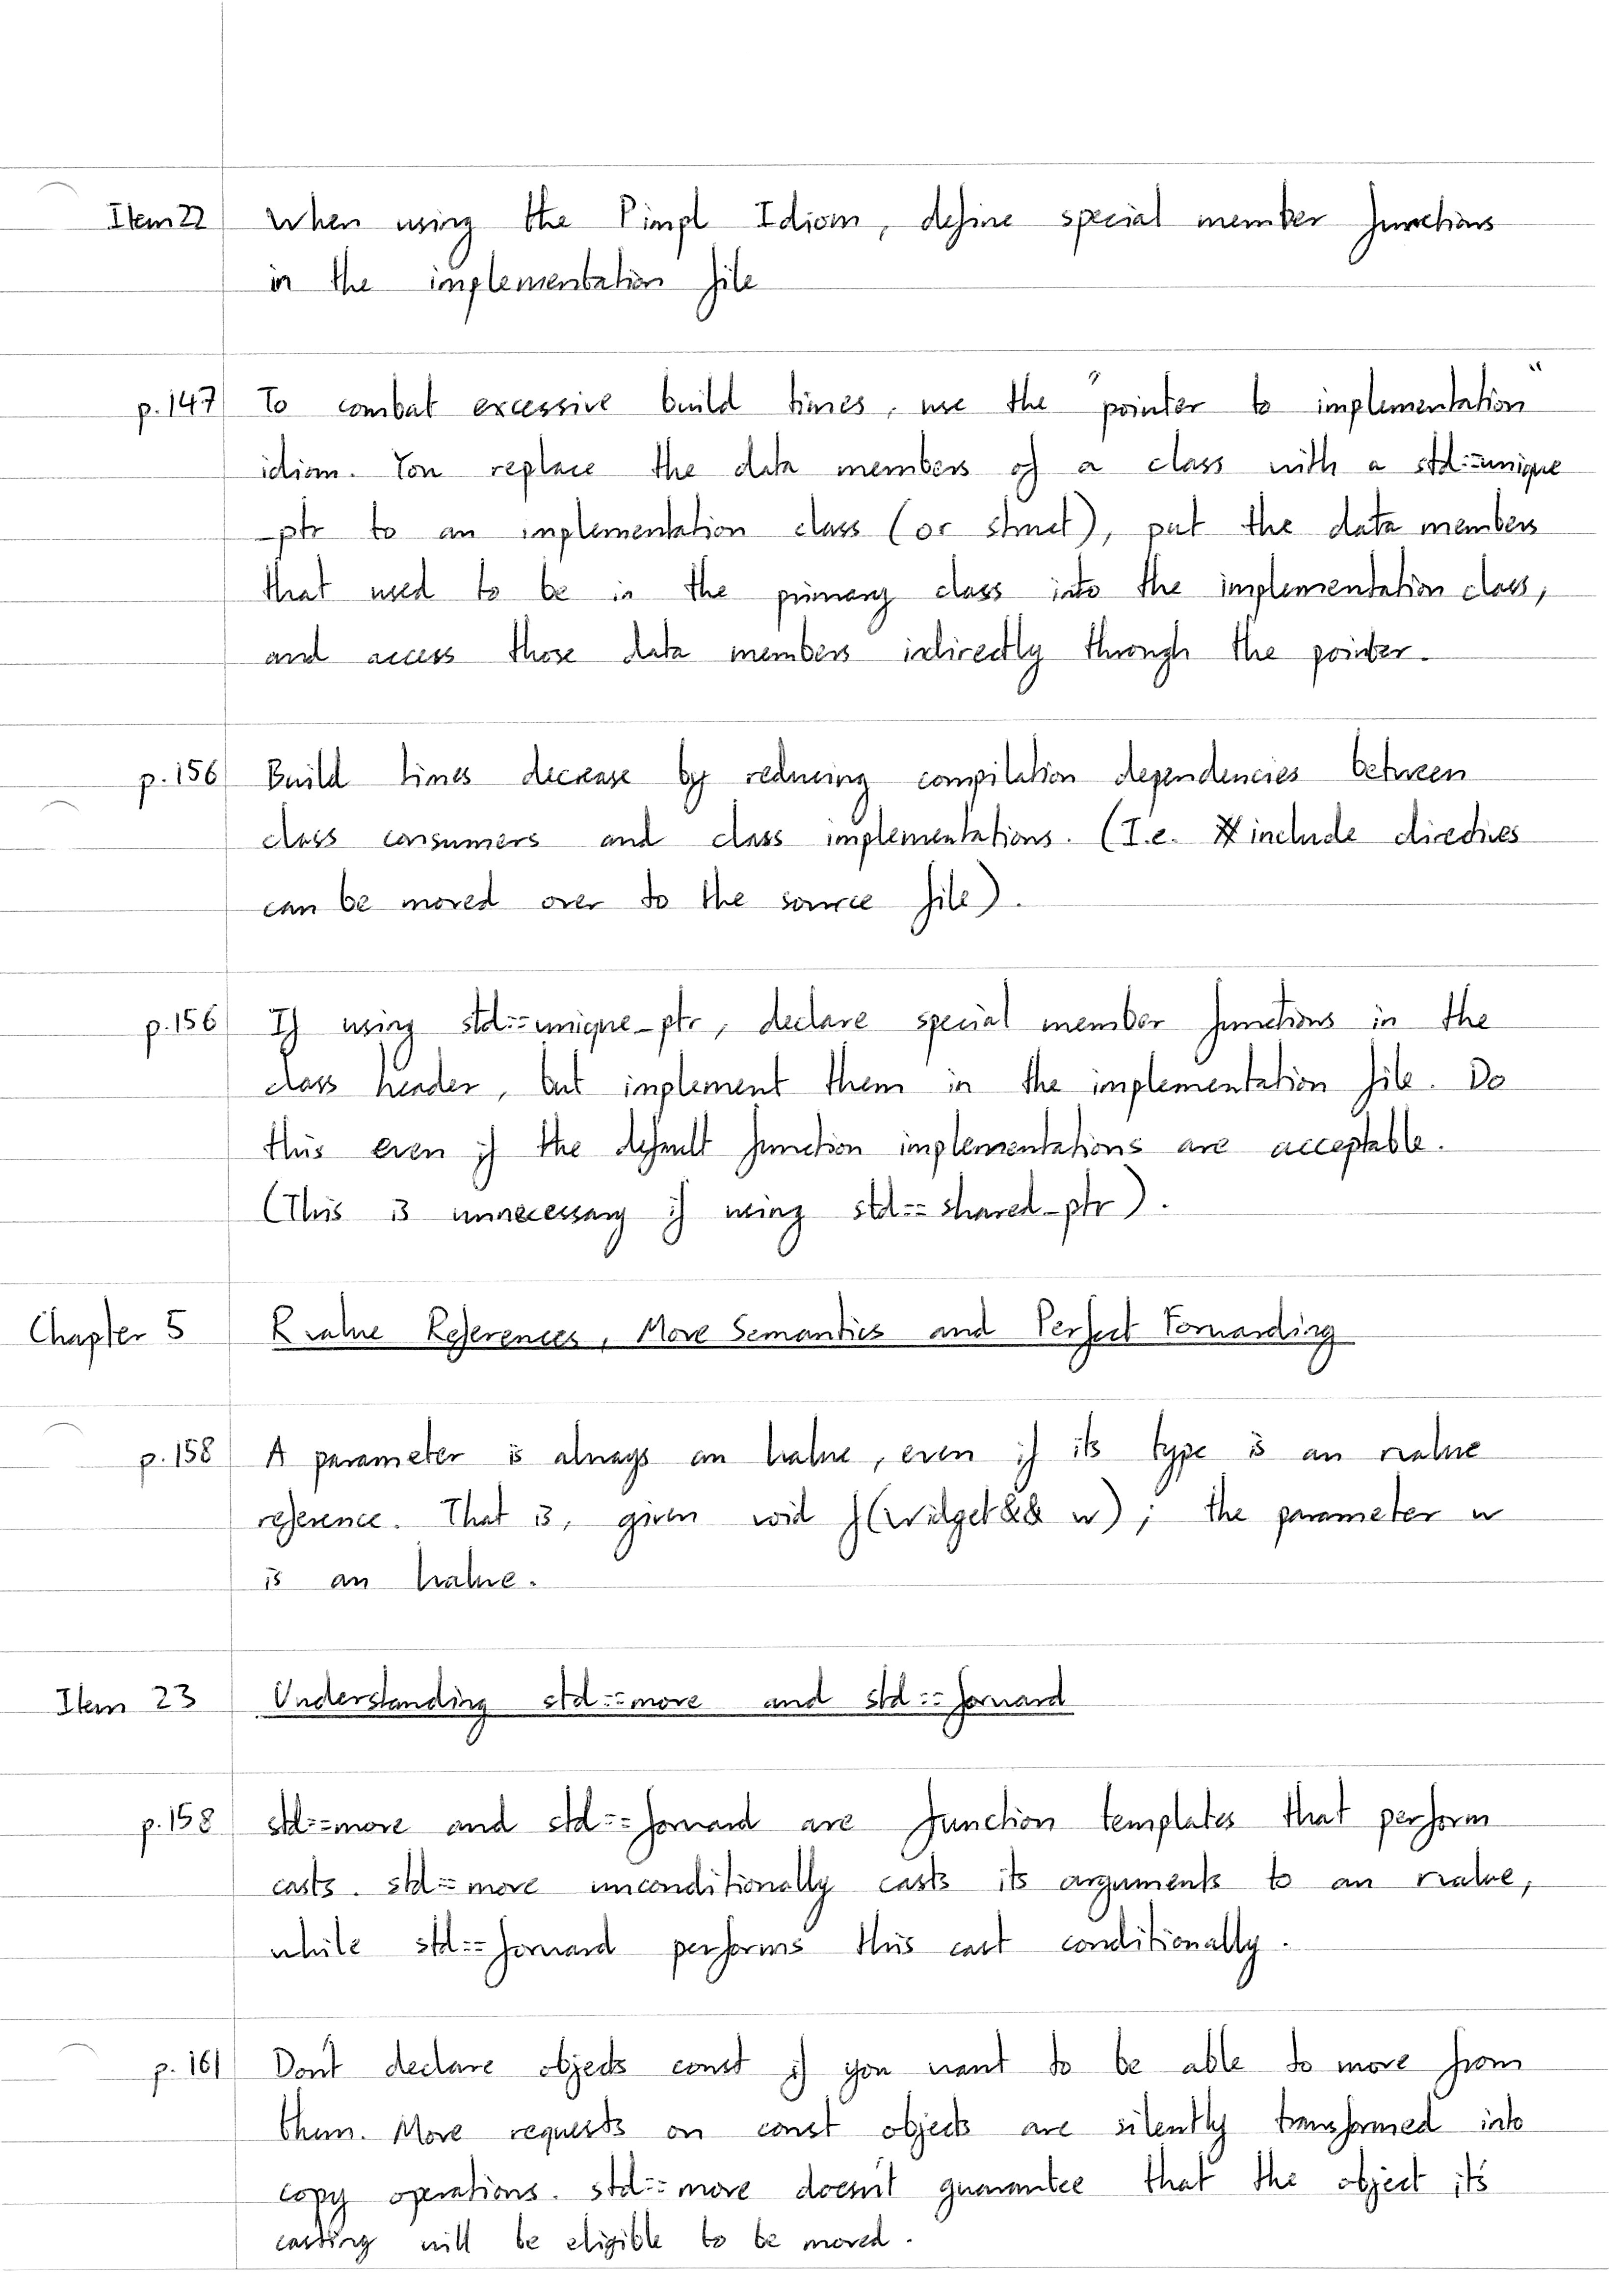 Item 22 When using the Pimpl Idiom, define special member functions
in the implementation file
p.147 To combat excessive build times, use the "pointer to implementation"
idiom. You replace the data members of a class with a std::unique
_ptr to an implementation class (or struct), put the data members
that used to be in the primary class into the implementation class,
and access those data members indirectly through the pointer.
p.156 Build times decrease by reducing compilation dependencies between
class consumers and class implementations. (I.e. #include directives
can be moved over to the source file).
p.156 If using std::unique_ptr, declare special member functions in the
class header, but implement them in the implementation file. Do
this even if the default function implementations are acceptable.
(This is unnecessary if using std::shared_ptr).
Chapter 5 Rvalue References, Move Semantics and Perfect Forwarding
p.158 A parameter is always an lvalue, even if its type is an rvalue
reference. That is, given void f(Widget&& w); the parameter w
is an lvalue.
Item 23 Understanding std::move and std::forward
p.158 std::move and std::forward are function templates that perform
casts. std::move unconditionally casts its arguments to an rvalue,
while std::forward performs this cast conditionally.
p.161 Don't declare objects const if you want to be able to move from
them. Move requests on const objects are silently transformed into
copy operations. std::move doesn't guarantee that the object it's
casting will be eligible to be moved.